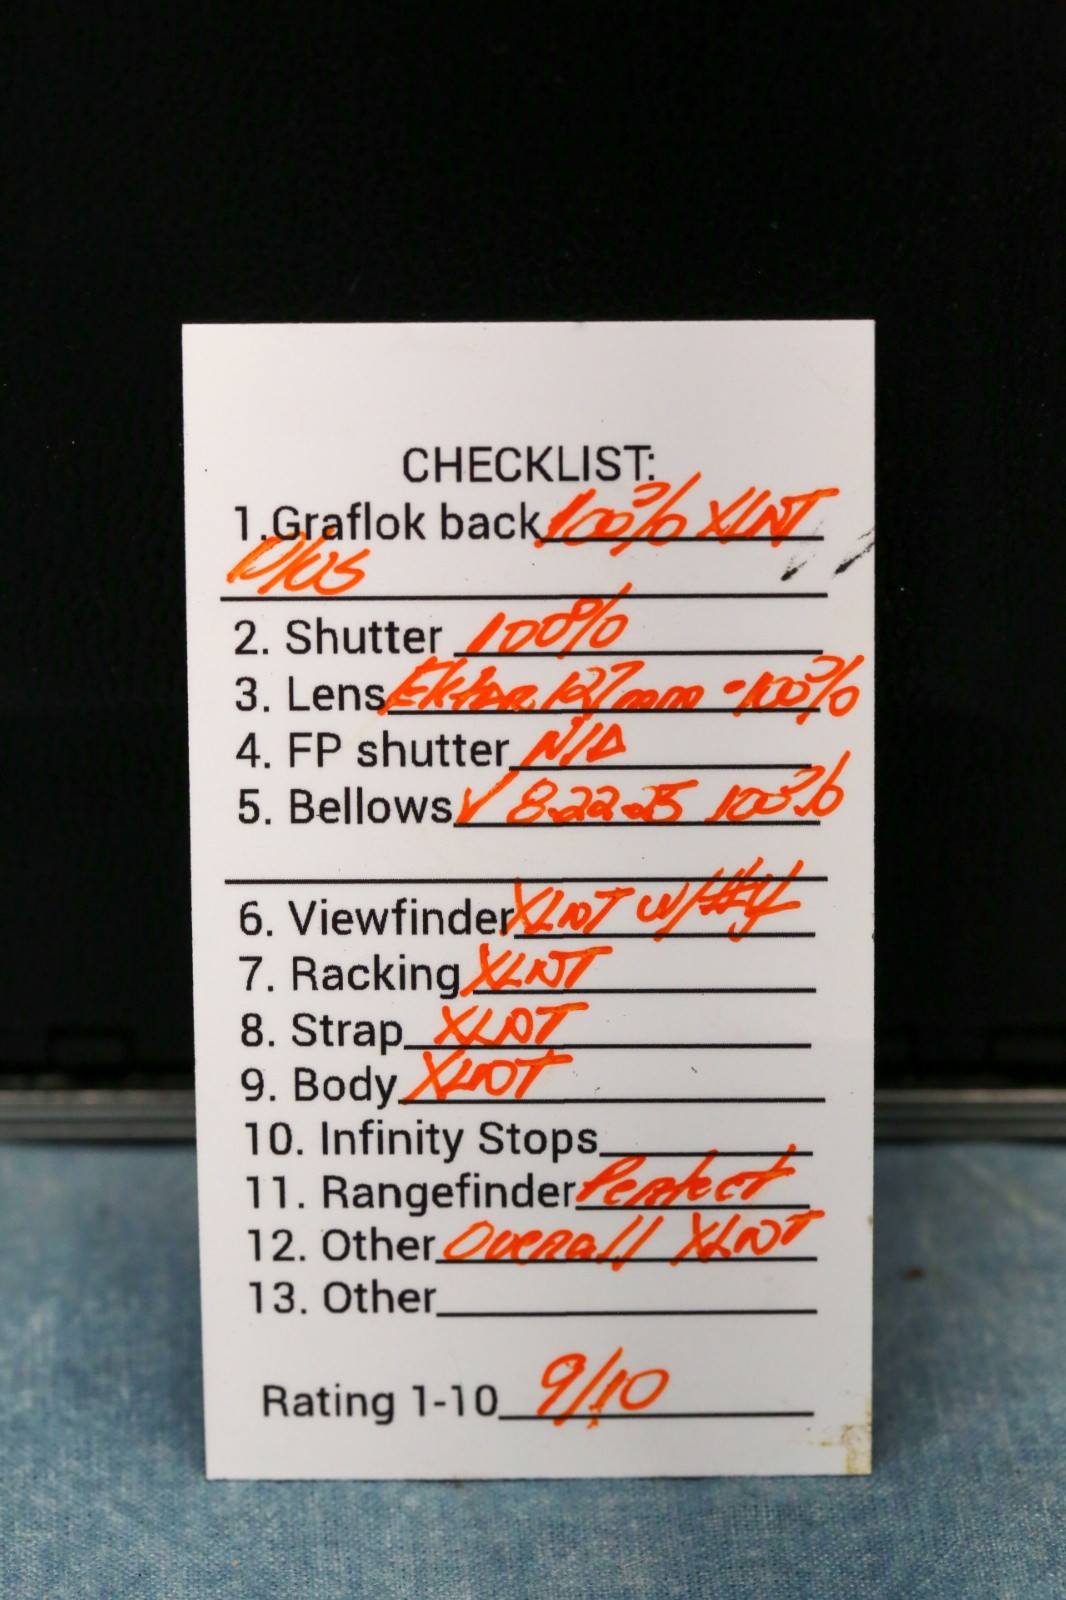 CHECKLIST:
1.Graflok back 100% XLNT
2. Shutter 100%
3. Lens Ektar 127mm - 100%
4. FP shutter N/A
5. Bellows √ 8.22.25 100%
6. Viewfinder XLNT w/
7. Racking XLNT
8. Strap XLNT
9. Body XLNT
10. Infinity Stops
11. Rangefinder Perfect
12. Other Overall XLNT
13. Other
Rating 1-10 9/10